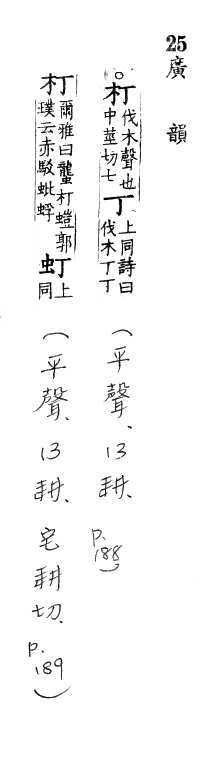 25 廣韻
○朾伐木聲也中莖切七丁上同詩曰伐木丁丁(平聲、13耕、p.188)
朾爾雅曰蠪朾螘郭璞云赤駁蚍蜉虰上同(平聲、13耕、宅耕切、p.189)